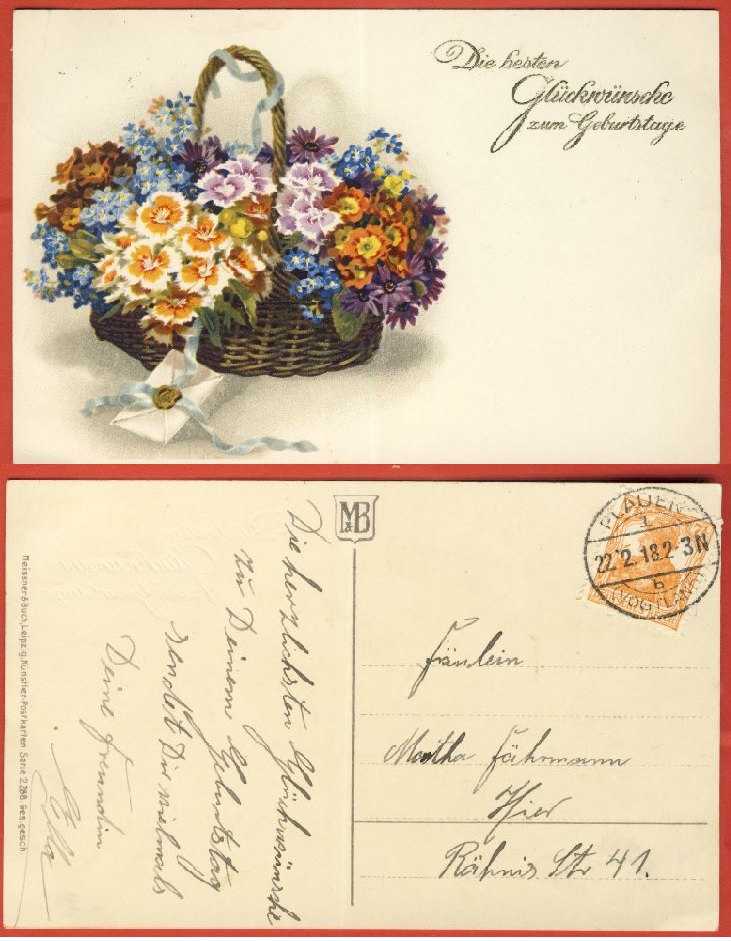 Die besten
Glückwünsche
zum Geburtstage
M&B
PLAUEN
22.2.18.2-3N
b
(VOGTLAND)
Die herzlichsten Glückwünsche
zu Deinem Geburtstag
sendet Dir vielmals
Deine Freundin
Ella
Fräulein
Martha Fährmann
Hier
Rähnis Str 41.
Meissner & Buch, Leipzig, Künstler-Postkarten Serie 2388. Ges. gesch.